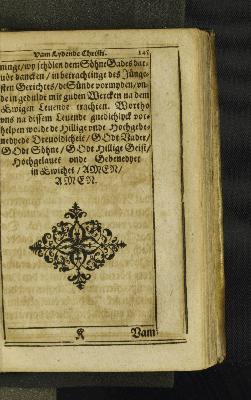 Vam Lydende Christi. 145
minge/wy schölen dem Söhne Gades dar-
vör dancken / in betrachtinge des Jünge-
sten Gerichtes/ de Sünde vormyden/vn-
de in gedulde mit guden Wercken na dem
Ewigen Leuende trachten. Wortho
vns na dissem Leuende gnedichlyck vor-
helpen wolde de Hillige vnde Hochgebe-
nedyede Drevoldicheit/ GOdt Vader/
GOdt Söhne / GOdt Hillige Geist/
Hochgelauet vnde Gebenedyet
in Ewicheit / AMEN/
AMEN.
K Vam